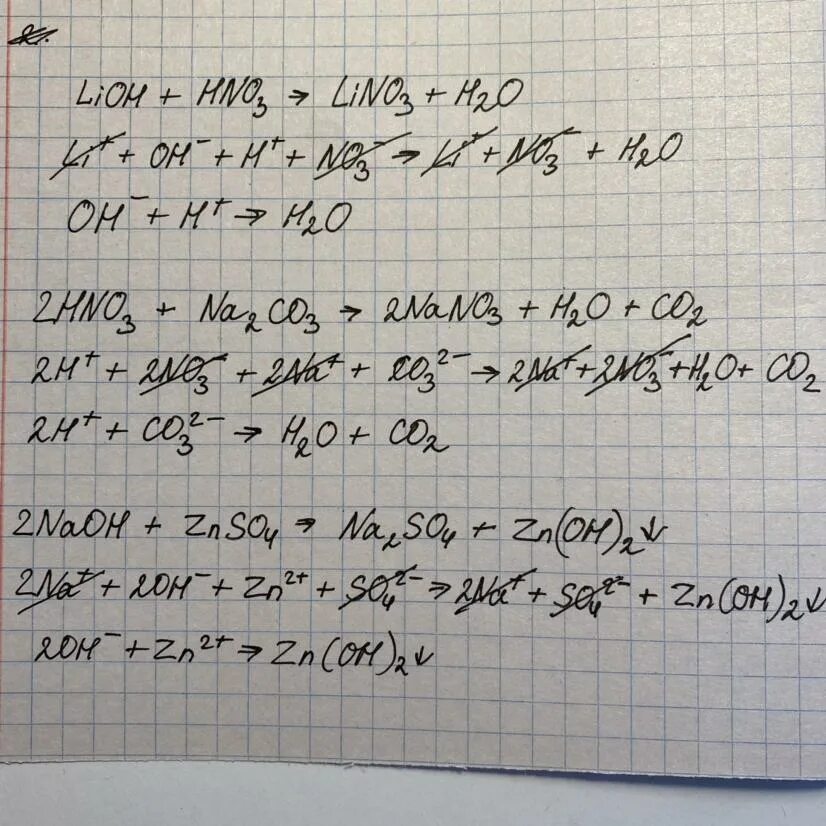 LiOH + HNO₃ → LiNO₃ + H₂O
Li⁺ + OH⁻ + H⁺ + NO₃⁻ → Li⁺ + NO₃⁻ + H₂O
OH⁻ + H⁺ → H₂O
2HNO₃ + Na₂CO₃ → 2NaNO₃ + H₂O + CO₂
2H⁺ + 2NO₃⁻ + 2Na⁺ + CO₃²⁻ → 2Na⁺ + 2NO₃⁻ + H₂O + CO₂
2H⁺ + CO₃²⁻ → H₂O + CO₂
2NaOH + ZnSO₄ → Na₂SO₄ + Zn(OH)₂↓
2Na⁺ + 2OH⁻ + Zn²⁺ + SO₄²⁻ → 2Na⁺ + SO₄²⁻ + Zn(OH)₂↓
2OH⁻ + Zn²⁺ → Zn(OH)₂↓